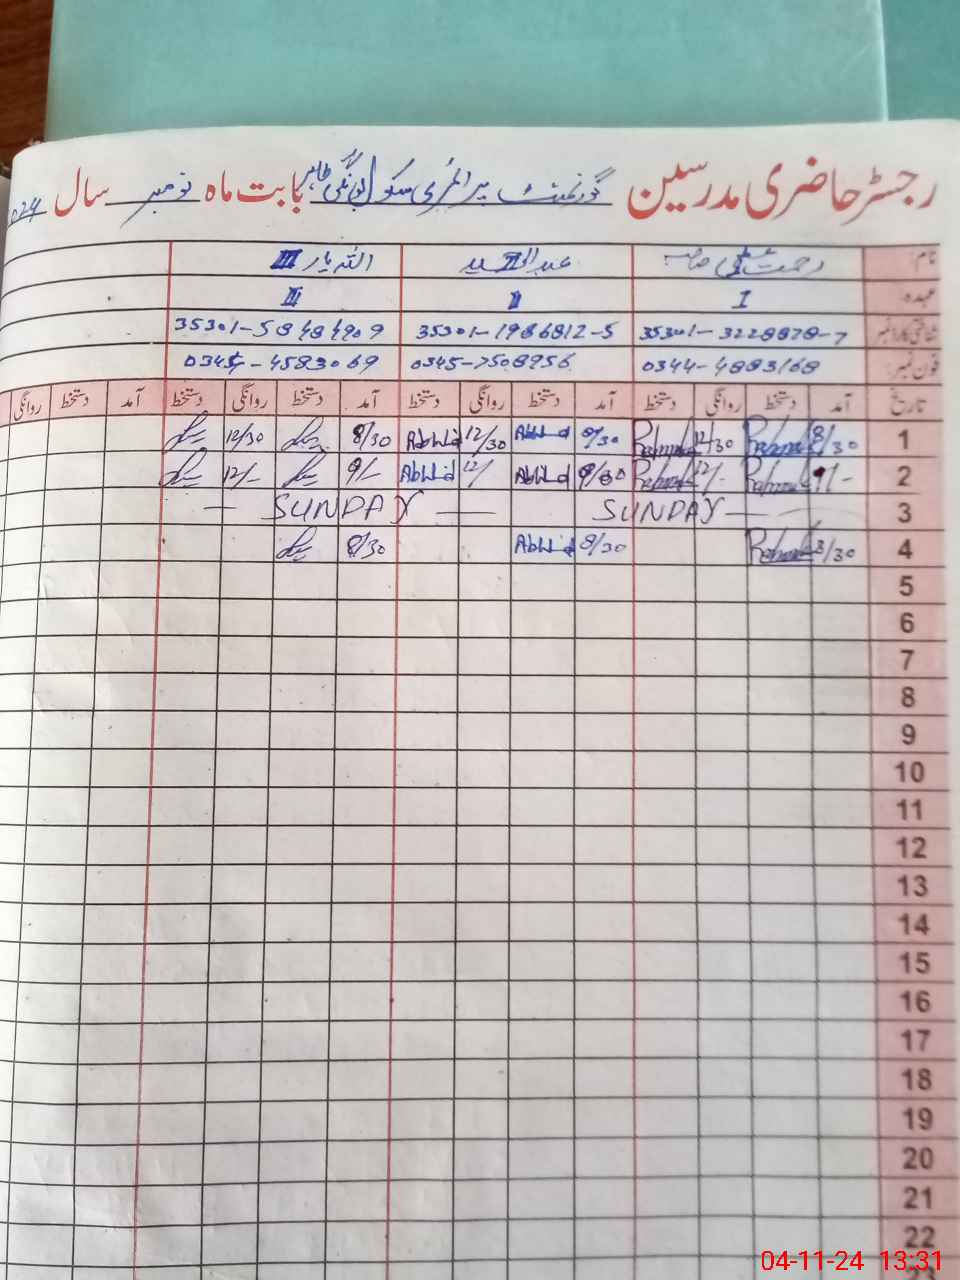 رجسٹر حاضری مدرسین گورنمنٹ پرائمری سکول بابت ماہ نومبر سال
نام: رحمت علی صاحب عبد اللہ یار III
عہدہ: I II III
شناختی کارڈ نمبر 35301-3228878-7 35301-1986812-5 35301-5848490 9
فون نمبر: 0344-4883168 0345-7508956 0345-4583069
تاریخ آمد دستخط روانگی دستخط آمد دستخط روانگی دستخط آمد دستخط روانگی دستخط آمد دستخط روانگی
1 8/30 Rehmat 12/30 Rehmat 8/30 AbWid 12/30 AbWid 8/30 12/30
2 9/- Rehmat 12/- Rehmat AbWid 12/ AbWid 9/- 12/-
3 SUNDAY — — SUNDAY —
4 8/30 Rehmat 8/30 AbWid 8/30
5
6
7
8
9
10
11
12
13
14
15
16
17
18
19
20
21
22
23
04-11-24 13:31